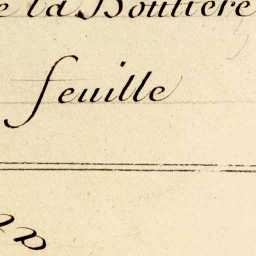 e la Boutiere
feuille